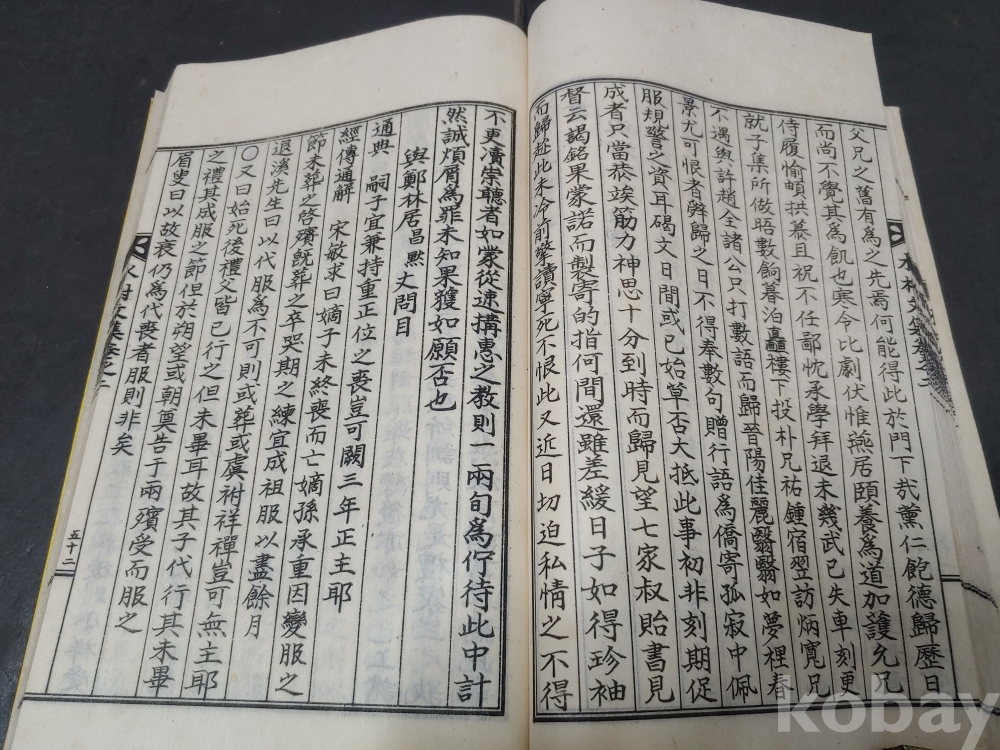 父兄之舊有爲之先焉何能得此於門下哉薰仁飽德歸歷日
而尙不覺其爲飢也寒今比劇伏惟燕居頤養爲道加護允兄
侍履愉頔拱慕且祝不任鄙忱承學拜退未幾武已失車刻更
就子集所做晤數餉暮泊矗樓下投朴兄祐鍾宿翌訪炳寬兄
不遇與許趙全諸公只打數語而歸晉陽佳麗翳翳如夢裡春
景尤可恨者辭歸之日不得奉數句贈行語爲僑寄孤寂中佩
服規警之資耳碣文日間或已始草否大抵此事初非刻期促
成者只當恭竢筋力神思十分到時而歸見望七家叔貽書見
督云謁銘果蒙諾而製寄的指何間還雖差緩日子如得珍袖
而歸趁此未冷前擎讀寧死不恨此又近日切迫私情之不得
不更瀆崇聽者如蒙從速搆惠之教則一兩旬爲佇待此中計
然誠煩屑爲罪未知果獲如願否也
與鄭林居昌默丈問目
通典 嗣子宜兼持重正位之喪豈可闕三年正主耶
經傳通解 宋敏求曰嫡子未終喪而亡嫡孫承重因變服之
節未葬之啓殯旣葬之卒哭期之練宜成祖服以盡餘月
退溪先生曰以代服爲不可則或葬或虞祔祥禫豈可無主耶
○又曰始死後禮父皆已行之但未畢耳故其子代行其未畢
之禮其成服之節但於朔望或朝奠告于兩殯受而服之
眉叟曰以故衰仍爲代喪者服則非矣
文集卷之二
五十二
kobay